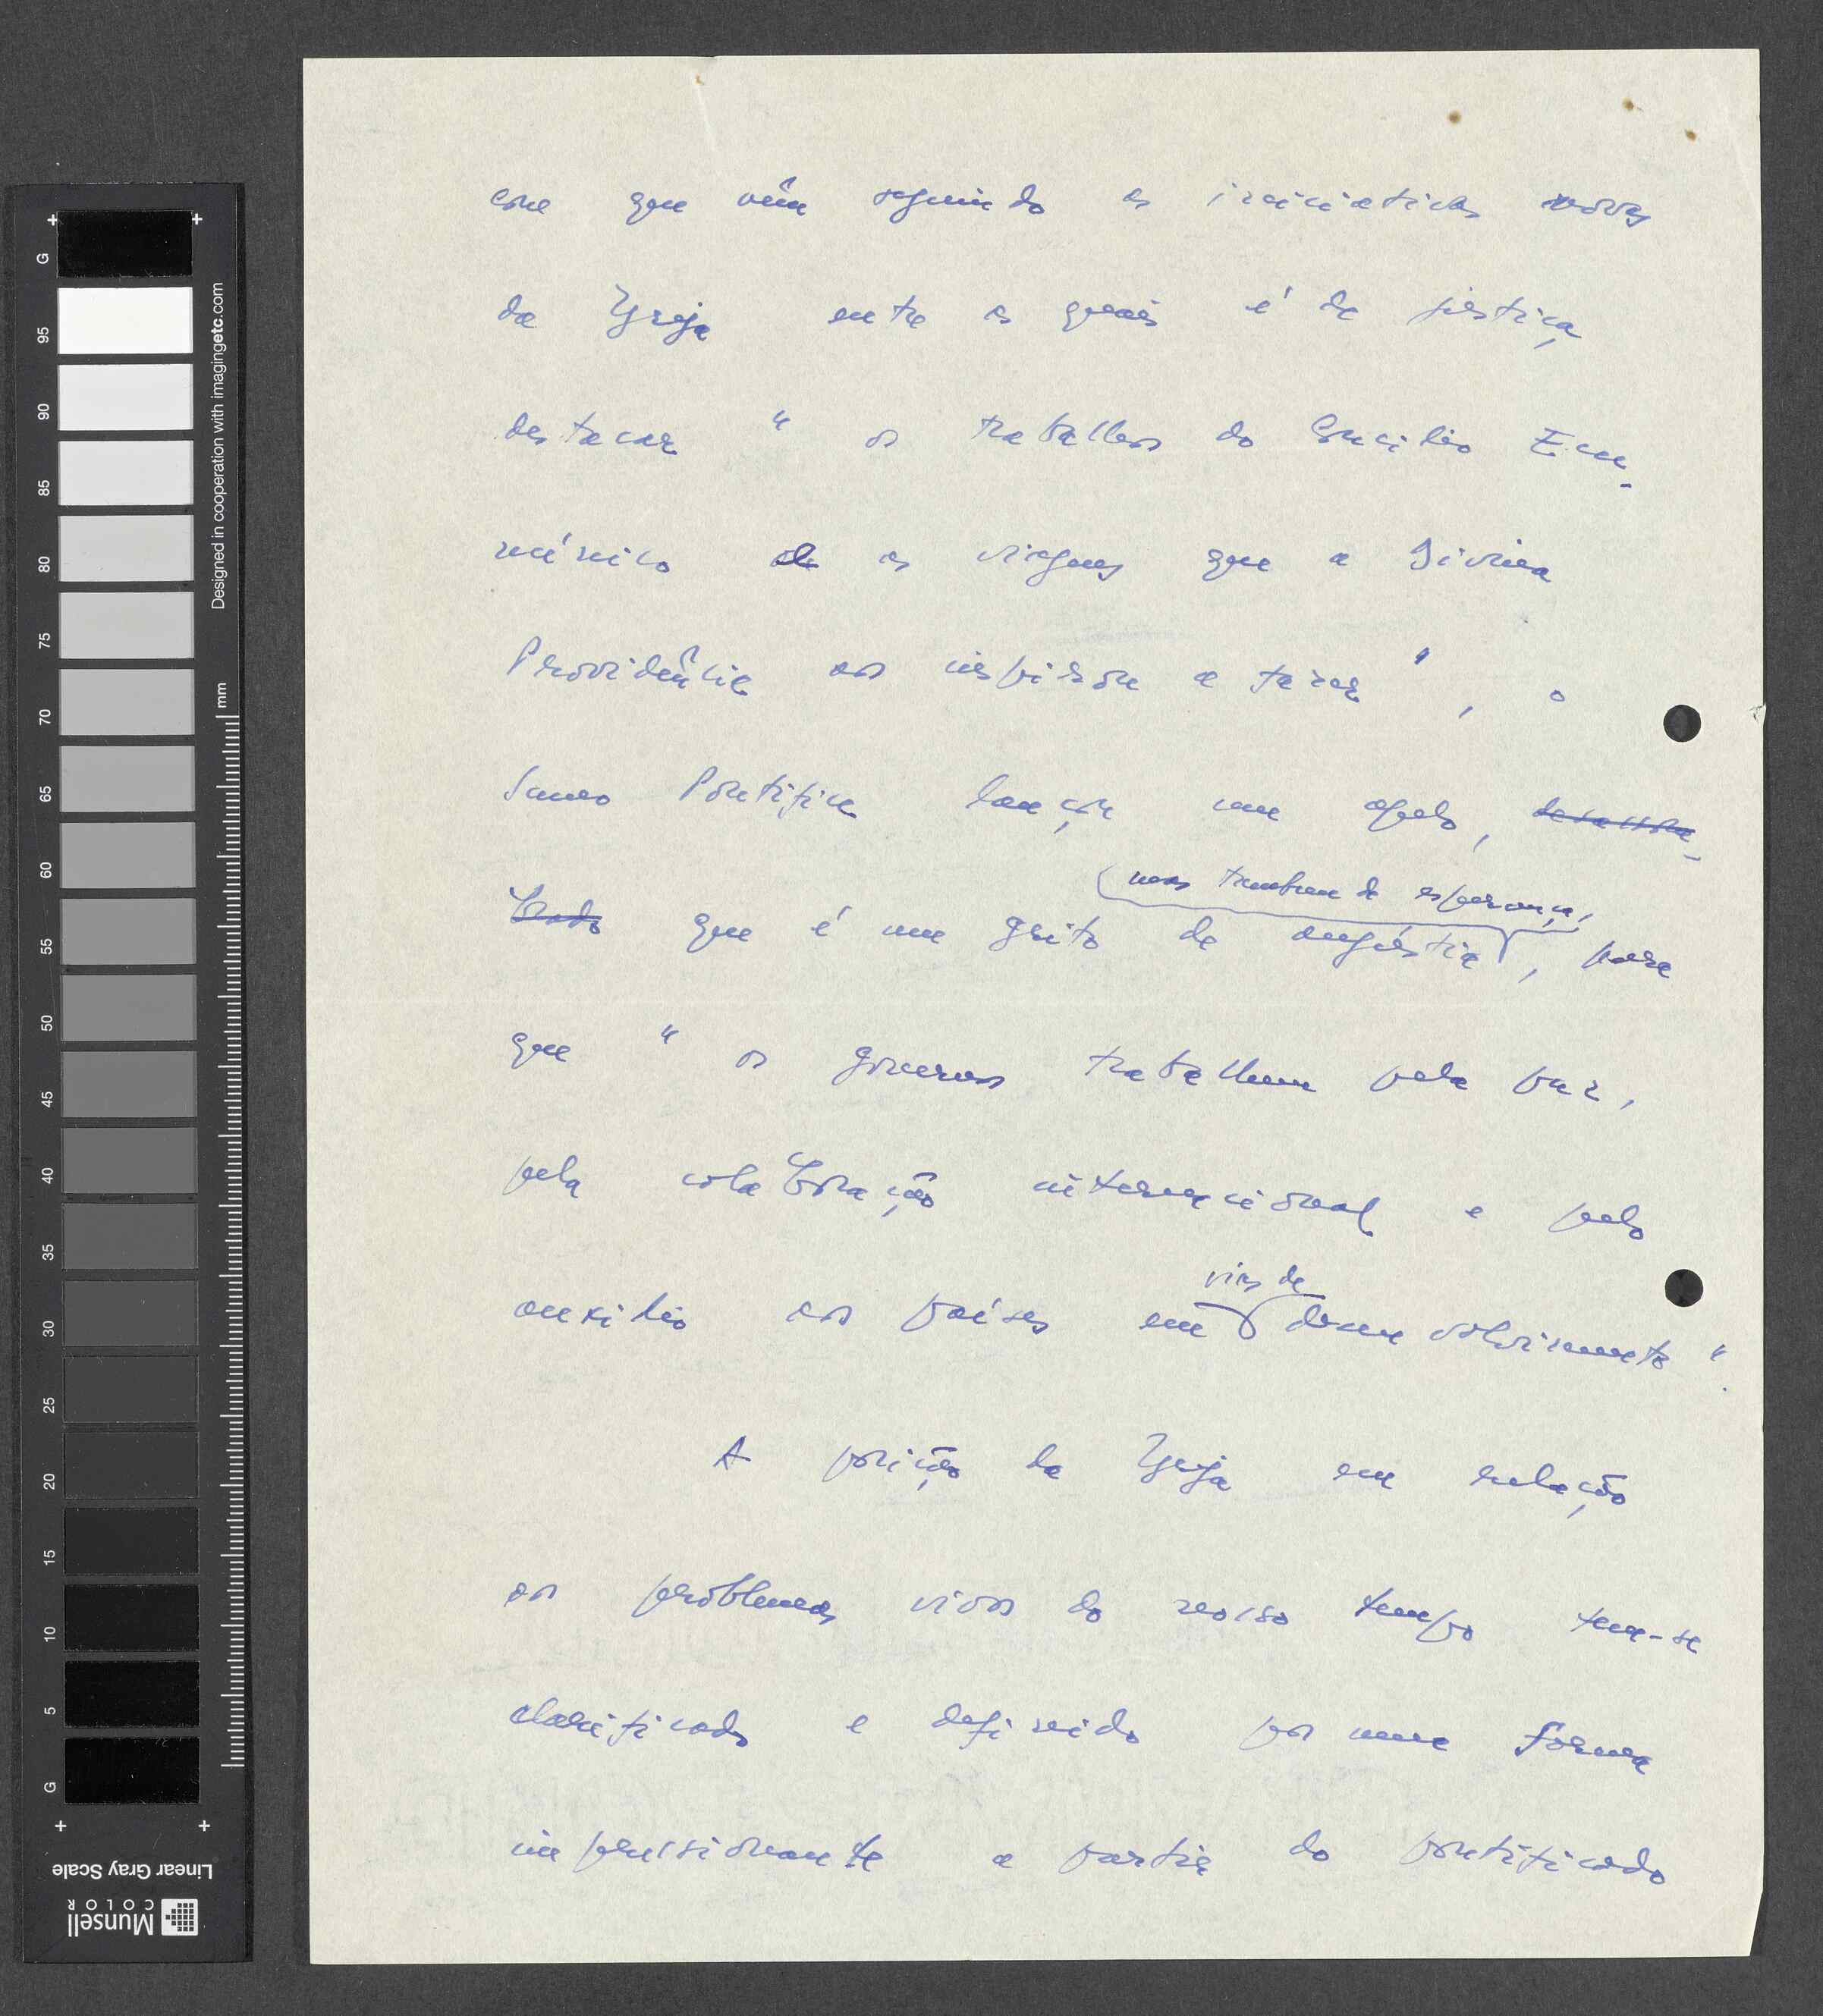 com que vêm seguindo as iniciativas novas
da Igreja entre as quais é de justiça
destacar " os trabalhos do Concílio Ecu-
ménico e as viagens que a Divina
Providência nos inspirou a fazer " , o
Sumo Pontífice lançou um apelo, desassom-
brado que é um grito de angústia, mas tambem de esperança, para
que " os governos trabalhem pela paz,
pela colaboração internacional e pelo
auxílio aos países em vias de desenvolvimento " .
A posição da Igreja em relação
aos problemas vivos do nosso tempo tem-se
clarificado e definido por uma forma
impressionante a partir do pontificado
G 95 90 85 80 75 70 65 60 55 50 45 40 35 30 25 20 15 10 5 G
Designed in cooperation with imagingetc.com
mm
Linear Gray Scale
Munsell
COLOR